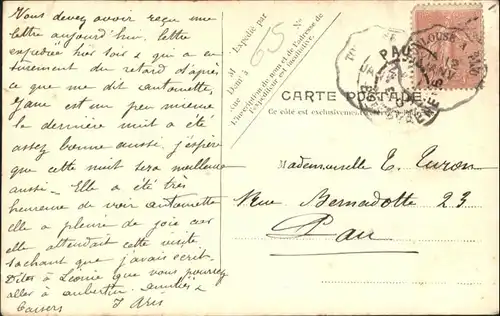 Vous devez avoir reçu une
lettre aujourd'hui. lettre
expédiée hier soir & qui a eu
surement du retard d'après
ce que me dit antoinette,
Jane est un peu mieux
la dernière nuit a été
assez bonne aussi, j'espère
que cette nuit sera meilleure
aussi _ Elle a été très
heureuse de voir antoinette
elle a pleuré de joie car
elle attendait cette visite
sachant que j'avais écrit.
Dites à Léonie que vous pouvez
aller à aubertin. amitiés &
baisers
N°
Expédié par
M
Dans
rue
L'inscription du nom et de l'adresse de
l'expéditeur est facultative.
65
CARTE POSTALE
Ce côté est exclusivement
PAU
TOULOUSE A PAU
Mademoiselle E. Turon
Rue Bernadotte 23
Pau